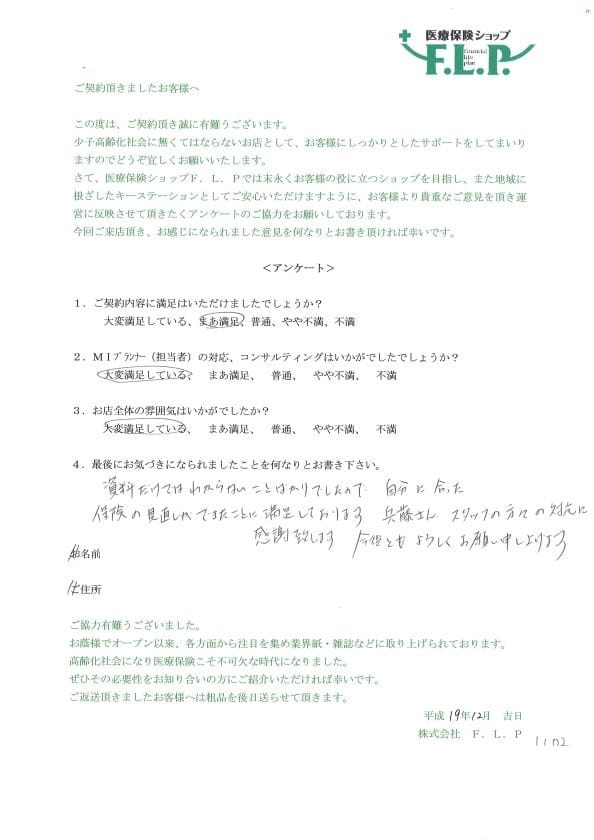 医療保険ショップ
F.L.P.
Financial
life
plan
ご契約頂きましたお客様へ
この度は、ご契約頂き誠に有難うございます。
少子高齢化社会に無くてはならないお店として、お客様にしっかりとしたサポートをしてまいり
ますのでどうぞ宜しくお願いいたします。
さて、医療保険ショップF．L．Pでは末永くお客様の役に立つショップを目指し、また地域に
根ざしたキーステーションとしてご安心いただけますように、お客様より貴重なご意見を頂き運
営に反映させて頂きたくアンケートのご協力をお願いしております。
今回ご来店頂き、お感じになられました意見を何なりとお書き頂ければ幸いです。
＜アンケート＞
１．ご契約内容に満足はいただけましたでしょうか？
大変満足している、まあ満足、普通、やや不満、不満
２．MIプランナー（担当者）の対応、コンサルティングはいかがでしたでしょうか？
大変満足している、 まあ満足、 普通、 やや不満、 不満
３．お店全体の雰囲気はいかがでしたか？
大変満足している、 まあ満足、 普通、 やや不満、 不満
４．最後にお気づきになられましたことを何なりとお書き下さい。
資料だけではわからないことばかりでしたので 自分に合った
保険の見直しができたことに満足しております 兵藤さん スタッフの方々の対応に
感謝致します 今後ともよろしくお願い申し上げます
名前
住所
ご協力有難うございました。
お蔭様でオープン以来、各方面から注目を集め業界紙・雑誌などに取り上げられております。
高齢化社会になり医療保険こそ不可欠な時代になりました。
ぜひその必要性をお知り合いの方にご紹介いただければ幸いです。
ご返送頂きましたお客様へは粗品を後日送らせて頂きます。
平成 19年12月 吉日
株式会社 F．L．P
1102